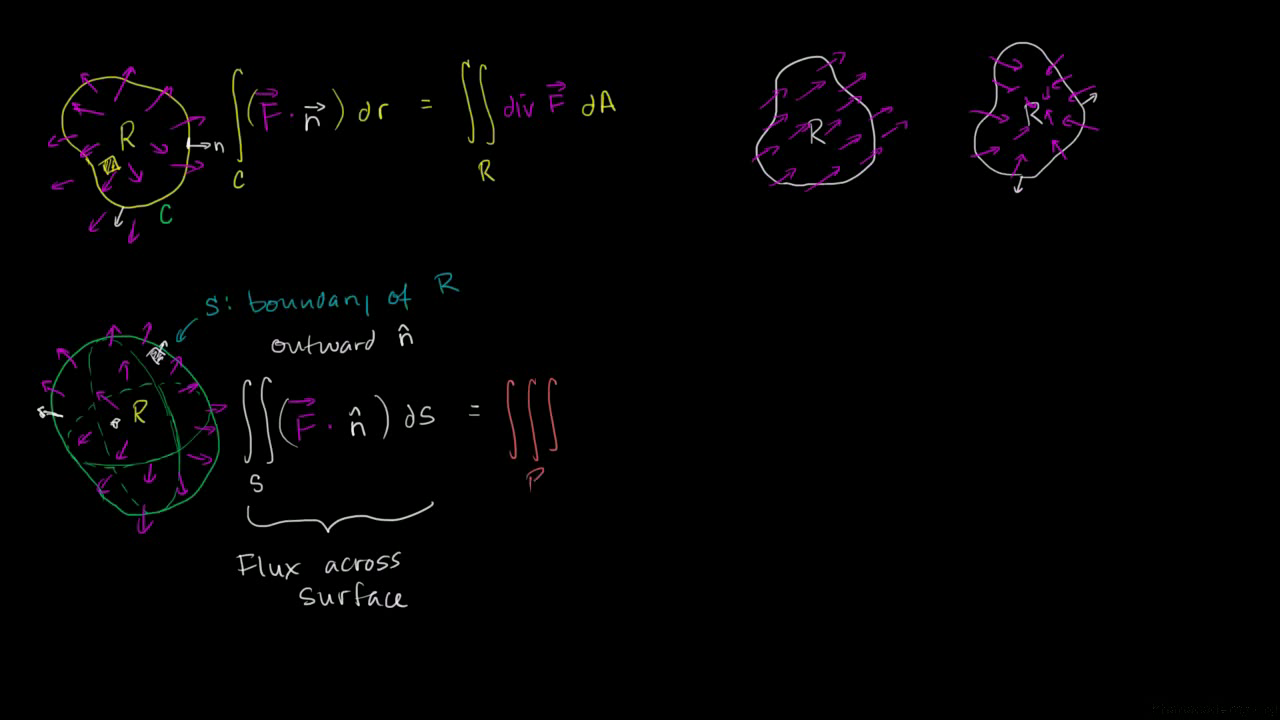 R
n
C
∫ (F⃗ · n⃗) dr = ∬ div F⃗ dA
C
R
R
R
S: boundary of R
outward n̂
R
∬ (F⃗ · n̂) dS = ∭
S
Flux across
surface